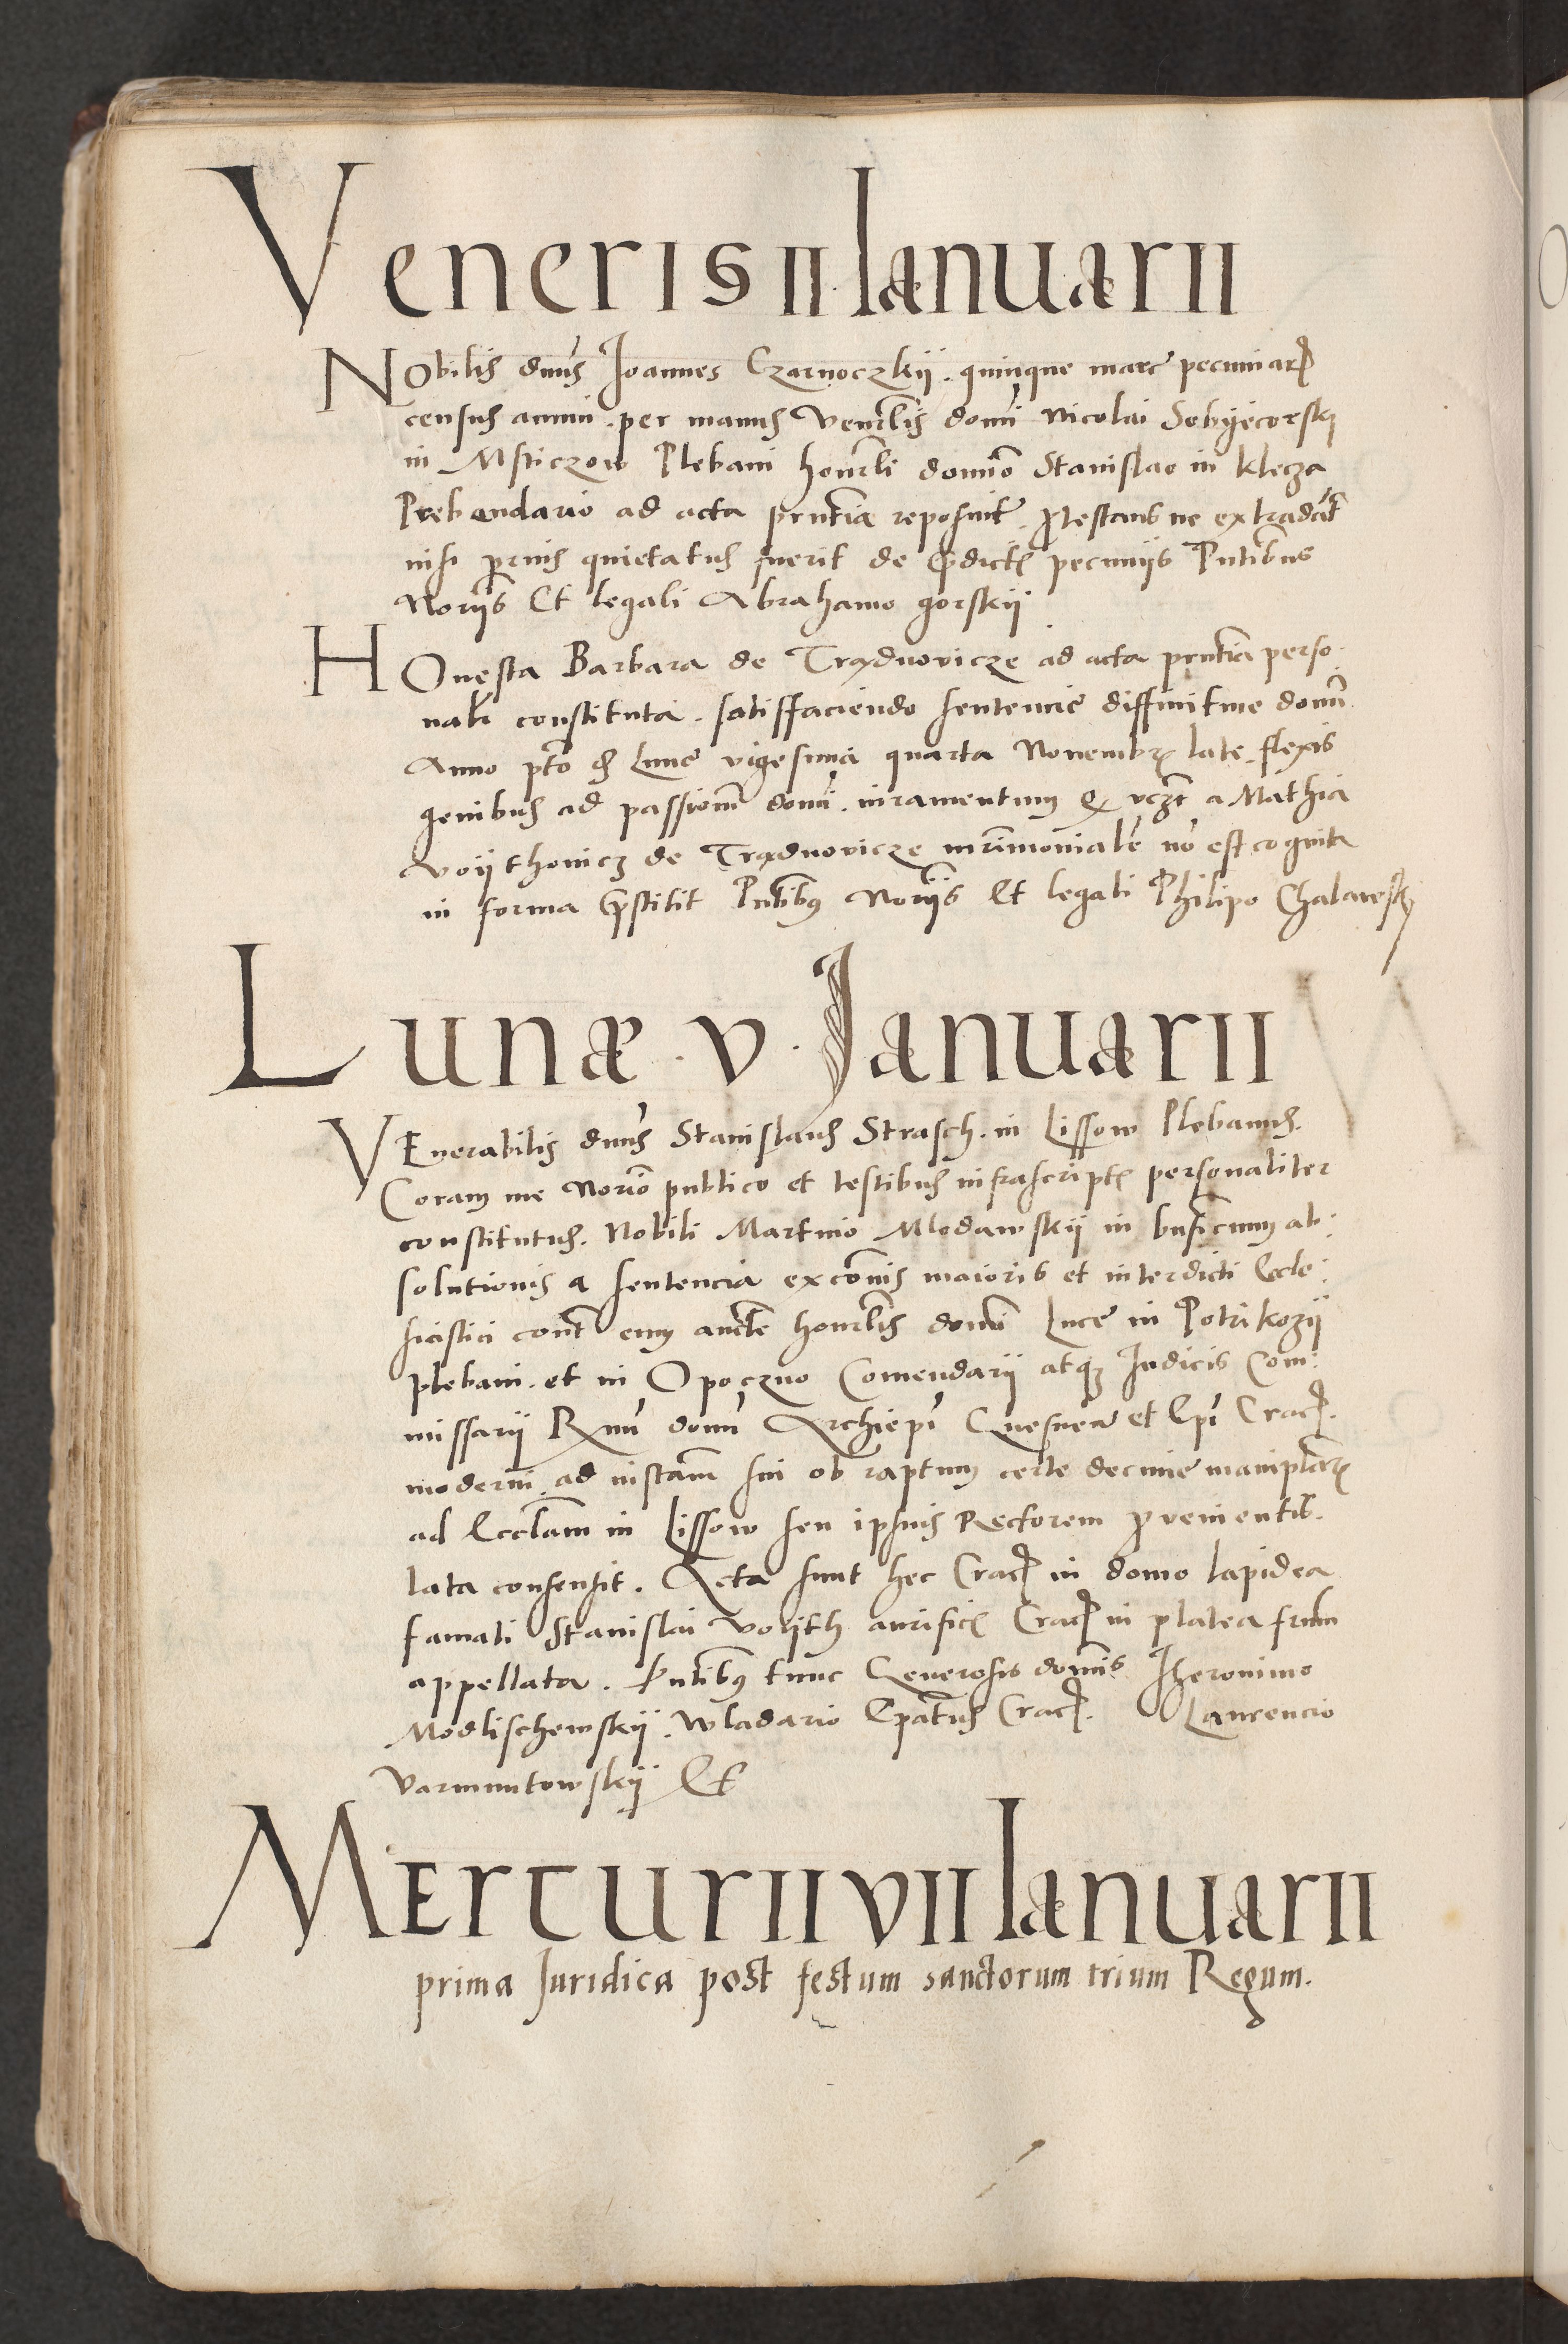 Veneris II Ianuarii
NObilis dnus Joannes Czarnoczkij. quinque marc pecuniar
census annui. per manus venerlis domi Nicolai Sobyecorskj
in Msticzow Plebani honorli domino Stanislao in klecza
Prebendario ad acta prntia reposuit. Protestans ne extradat
nisi prius quietatus fuerit de predict pecuniis Pntibus
Noriis Et legali Abrahamo gorskij
HOnesta Barbara de Traduovicze ad acta prntia perso
nali constituta. satisffaciendo sentencie diffinitiue domi
Anno pto die lune vigesima quarta Nouembr late flexis
genibus ad passionem domi. iuramentum q vczt a Mathia
voijthouicz de Traduovicze mrimonialr no est cognita
in forma prestitit Pntibus Noriis Et legali Philipo Chalawskj
Lunæ. V. Januarii
VEnerabilis dnus Stanislaus Strasch. in Lissow Plebanus.
Coram me Norio publico et testibus infrascript personaliter
constitutus. Nobili Martino Mlodawskij in bnficium ab:
solutionis a sentencia excois maioris et interdicti Eccle:
siastici cont eum aucte honorlis domi Luce in Potrikozij
plebani. et in Opoczno Comendarij atq Iudicis Com:
missarij Rmi domi Archiepi Gnesnen et Epi Crac.
moderni. ad instam sui ob raptum certe decime maniplar
ad Ecclam in Lissow seu ipsius Rectorem prouenientis.
lata consensit. Acta sunt hec Crac in domo lapidea
famati Stanislai voijth aurific Crac in platea frum
appellata. Pntibus tunc Generosis domis Iheronimo
Modlischewskij. Wladario Epatus Crac. Laurencio
Varmuntowskij Et
MErcurii VII Ianuarii
prima Juridica post festum sanctorum trium Regum.